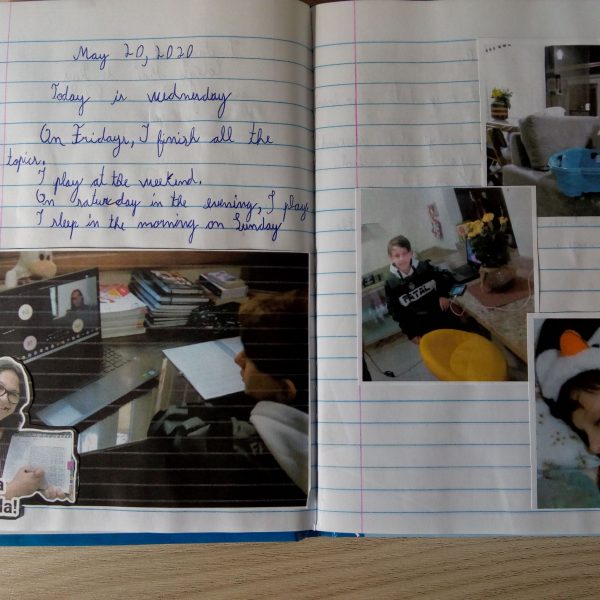 May 20, 2020
Today is wednesday
On Fridays, I finish all the
topics.
I play at the weekind.
On saturday in the evening, I play
I sleep in the morning on Sunday
FATAL
a
da!